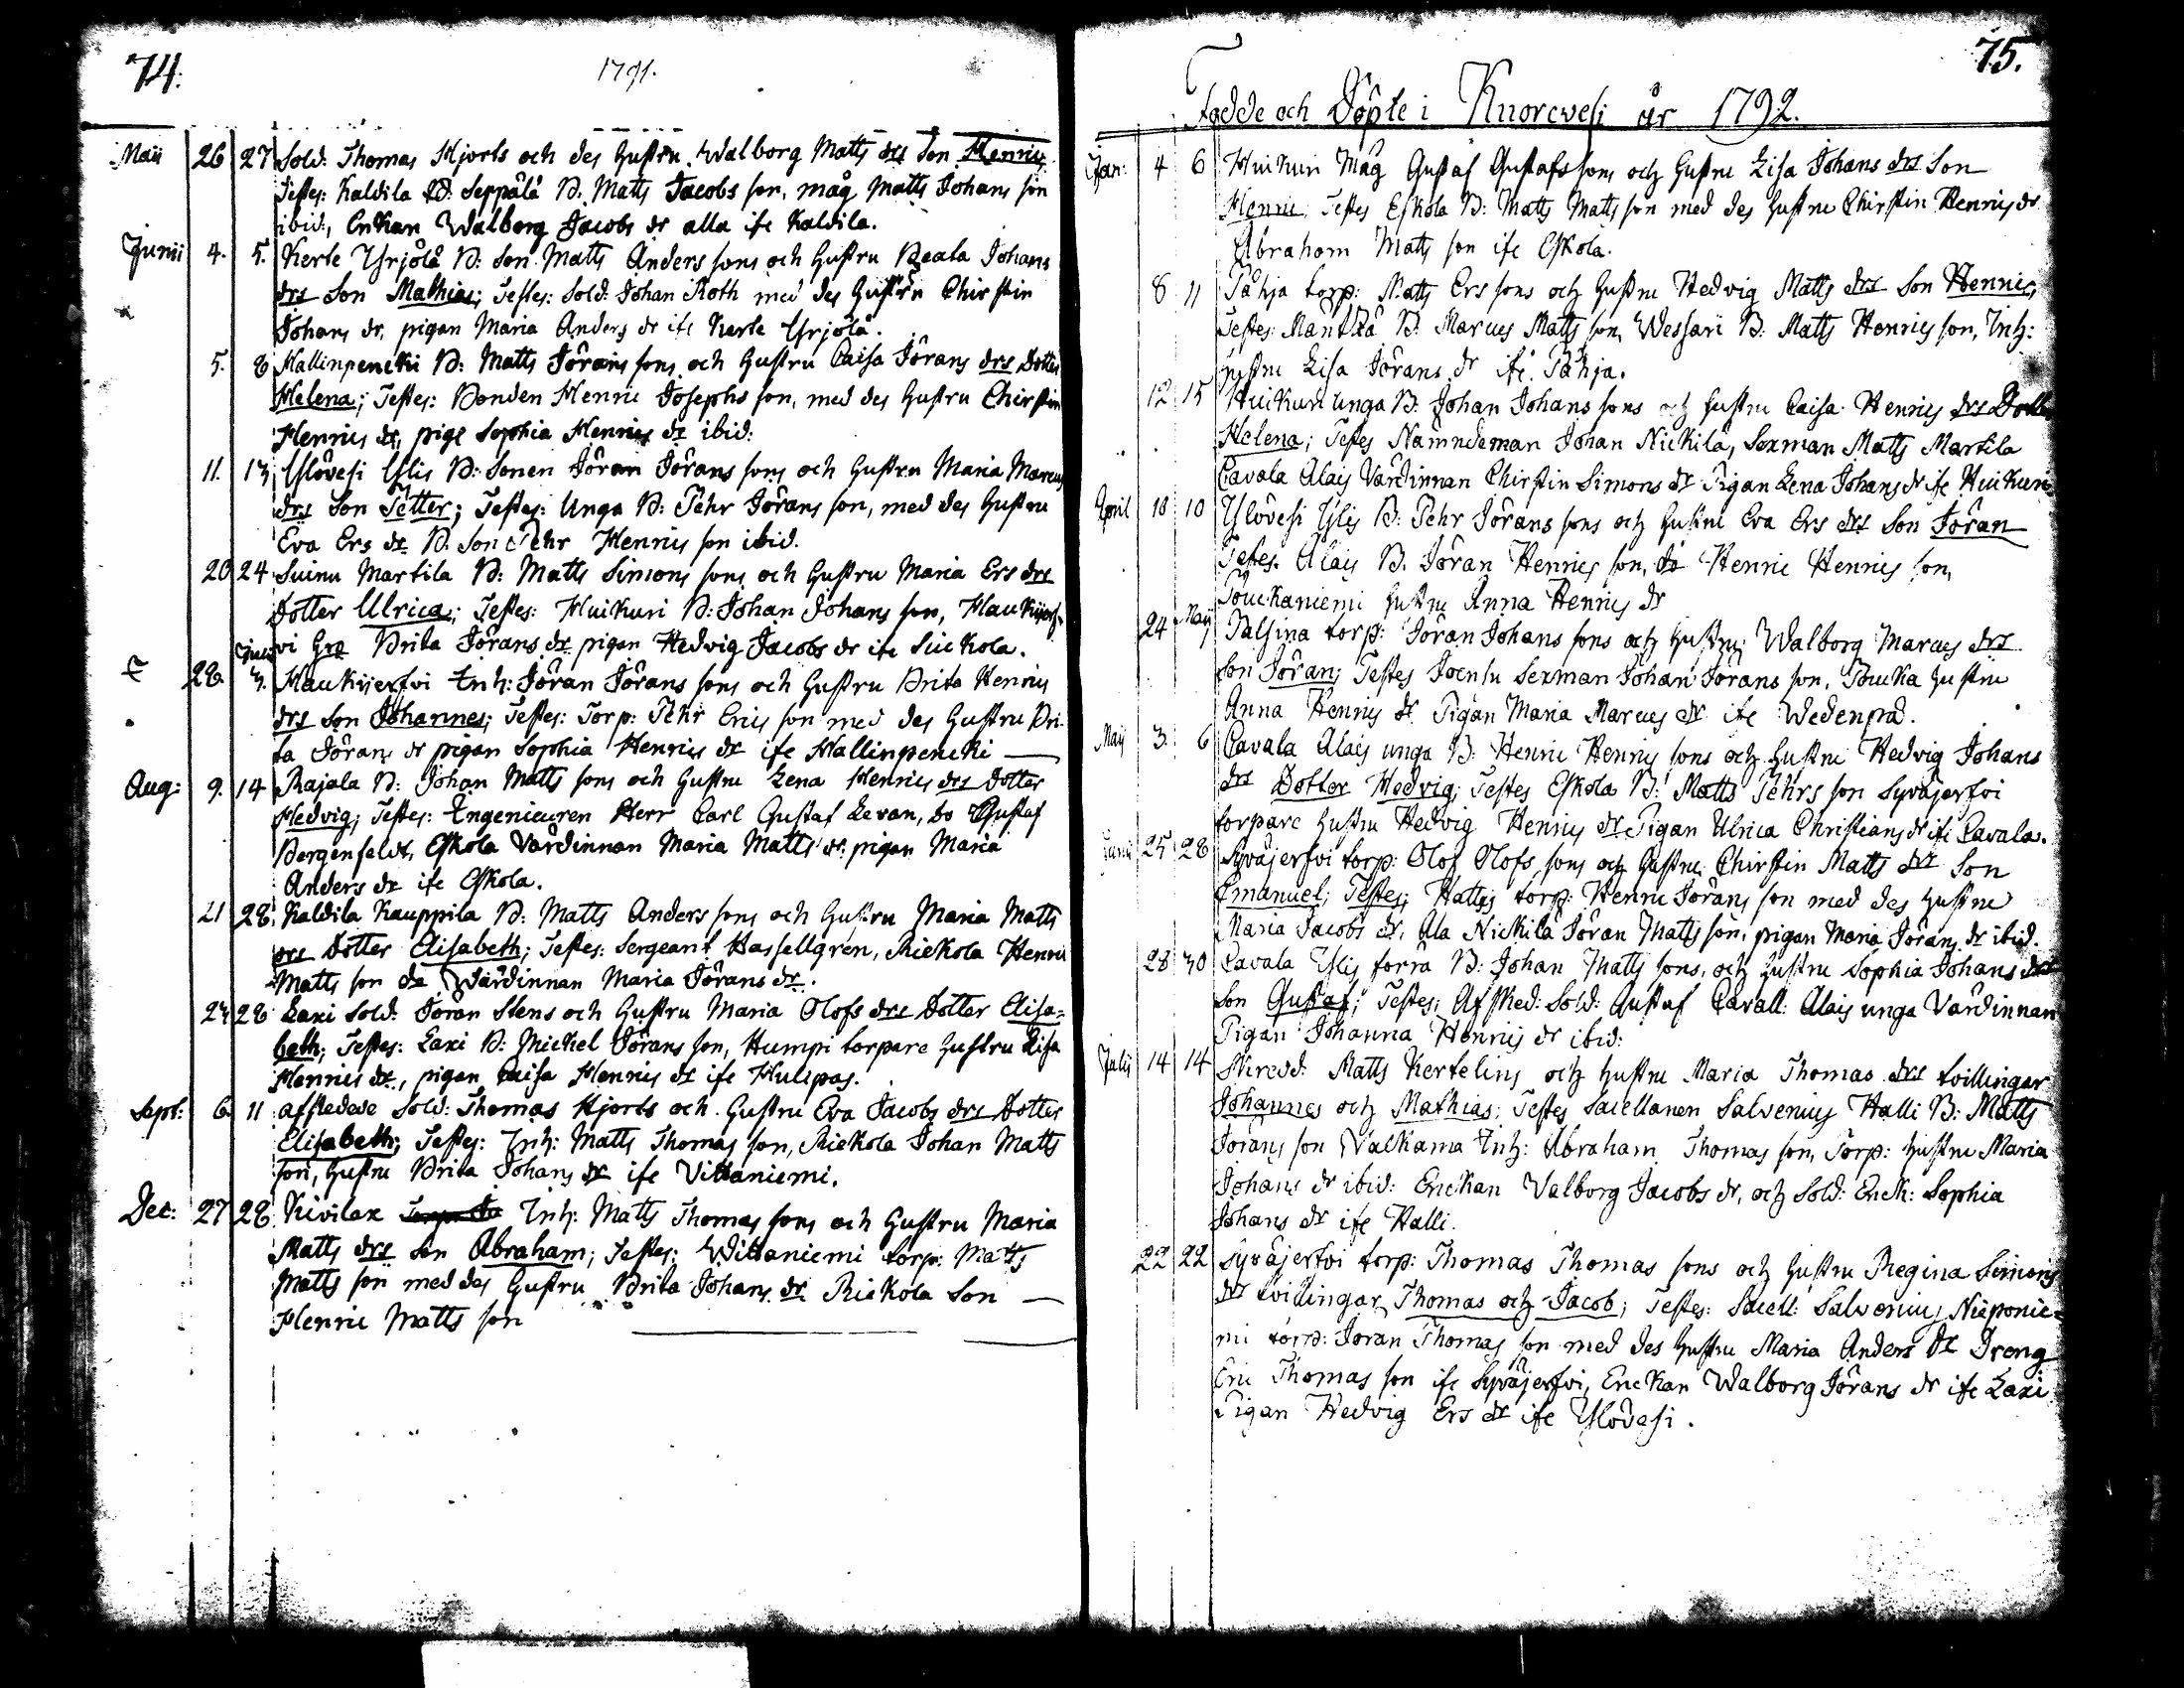 74.
1791.
Maii 26 27 Sold: Thomas Hjorts och des hustru Walborg Matts drs Son Henric
Testes: Kaldila Seppälä B. Matts Jacobs son, måg Matts Johans son
ibid:, Enkan Walborg Jacobs dr alla ifr Kaldila.
Junii 4. 5. Kerte Yrjölä B: Son Matts Anders sons och hustru Beata Johans
drs Son Mathias; Testes: Sold: Johan Roth med des hustru Chirstin
Johans dr, pigan Maria Anders dr ifr Kerte Yrjölä.
5. 8 Hallinpencki B: Matts Jörans sons och hustru Caisa Jörans drs Dotter
Helena; Testes: Bonden Henric Josephs son, med des hustru Chirstin
Henrics dr, pige Sophia Henrics dr ibid:
11. 13 Ylövesi Ylis B: Sonen Jöran Jörans sons och hustru Maria Marcus
drs Son Petter; Testes: Unga B: Pehr Jörans son, med des hustru
Eva Ers dr B. Son Pehr Henrics son ibid.
20 24 Suinu Martila B: Matts Simons sons och hustru Maria Ers drs
Dotter Ulrica; Testes: Huikuri B: Johan Johans son, Haukijerf-
vi Brita Jörans dr pigan Hedvig Jacobs dr ifr Suckola.
28 Julii 3. Haukijerfvi Inh: Jöran Jörans sons och hustru Brita Henrics
drs Son Johannes; Testes: Torp: Pehr Erics son med des hustru Bri-
ta Jörans dr pigan Sophia Henrics dr ifr Hallinpencki
Aug: 9. 14 Rajala B: Johan Matts sons och hustru Lena Henrics drs Dotter
Hedvig; Testes: Ingenieuren Herr Carl Gustaf Levan, do Gustaf
Bergenfeldt, Eskola Värdinnan Maria Matts dr pigan Maria
Anders dr ifr Eskola.
21 28. Kaldila Kauppila B: Matts Anders sons och hustru Maria Matts
drs Dotter Elisabeth; Testes: Sergeant Hassellgren, Riekola Henric
Matts son Wärdinnan Maria Jörans dr.
23 28 Laxi Sold: Jöran Stens och hustru Maria Olofs drs Dotter Elisa-
beth; Testes: Laxi B: Michel Jörans son, Humpi torpare hustru Lisa
Henrics dr, pigan Caisa Henrics dr ifr Hulipas.
Sept: 6. 11 afskedede Sold: Thomas Hjorts och hustru Eva Jacobs drs Dotter
Elisabeth; Testes: Inh: Matts Thomas son, Riekola Johan Matts
son, hustru Brita Johans dr ifr Vittaniemi.
Dec: 27 28 Kivilax Inh: Matts Thomas sons och hustru Maria
Matts drs Son Abraham; Testes: Wittaniemi torp: Matts
Matts son med des hustru Brita Johans dr Riekola Son
Henric Matts son
75.
Födde och Döpte i Kuorevesi år 1792.
Jan: 4 6 Huikuri Måg Gustaf Gustafs sons och hustru Lisa Johans drs Son
Henric; Testes Eskola B: Matts Matts son med des hustru Chirstin Henrics dr
Abraham Matts son ifr Eskola.
8 11 Pähja torp: Matts Ers sons och hustru Hedvig Matts drs Son Henric;
Testes: Mäntkä B: Marcus Matts son, Wessari B: Matts Henrics son, Inh:
hustru Lisa Jörans dr ifr Pähja.
12 15 Huikuri unga B: Johan Johans sons och hustru Caisa Henrics drs Dotter
Helena; Testes Nämndeman Johan Nickilä, Sexman Matts Martila
Cavala Alais Värdinnan Chirstin Simons dr Pigan Lena Johans dr ifr Huikuri
April 18 10 Ylövesi Ylis B: Pehr Jörans sons och hustru Eva Ers drs Son Jöran
Testes. Alais B. Jöran Henrics son, do Henric Henrics son,
Pouckaniemi hustru Anna Henrics dr
24 Maij Palsina torp: Jöran Johans sons och hustru Walborg Marcus drs
Son Jöran; Testes Joensu Sexman Johan Jörans son, Poucka hustru
Anna Henrics dr Pigan Maria Marcus dr ifr Wedenpä.
Maij 3 6 Cavala Alais unga B: Henric Henrics sons och hustru Hedvig Johans
drs Dotter Hedvig; Testes Eskola B: Matts Pehrs son Syväjerfvi
torpare hustru Hedvig Henrics dr Pigan Ulrica Christians dr ifr Cavala.
Junii 25 28 Syväjerfvi torp: Olof Olofs sons och hustru Chirstin Matts drs Son
Emanuel; Testes; Hattes torp: Henric Jörans son med des hustru
Maria Jacobs dr, Ala Nickilä Jöran Matts son, pigan Maria Jörans dr ibid.
28 30 Cavala Ylis förra B: Johan Matts sons, och hustru Sophia Johans drs
Son Gustaf; Testes; Afsked: Sold: Gustaf Cavall: Alais unga Värdinnan
Pigan Johanna Henrics dr ibid:
Julij 14 14 Skredd: Matts Kertelins och hustru Maria Thomas drs tvillingar
Johannes och Mathias; Testes Sacellanen Salvenius Halli B: Matts
Jörans son Valkama Inh: Abraham Thomas son, Torp: hustru Maria
Johans dr ibid: Enckan Valborg Jacobs dr, och Sold: Enck: Sophia
Johans dr ifr Halli.
22 22 Syväjerfvi torp: Thomas Thomas sons och hustru Regina Simons
dr tvillingar Thomas och Jacob; Testes: Sacell: Salvenius, Nieponie-
mi torp: Jöran Thomas son med des hustru Maria Anders dr Dreng
Eric Thomas son ifr Syväjerfvi, Enckan Walborg Jörans dr ifr Laxi
Pigan Hedvig Ers dr ifr Ylövesi.